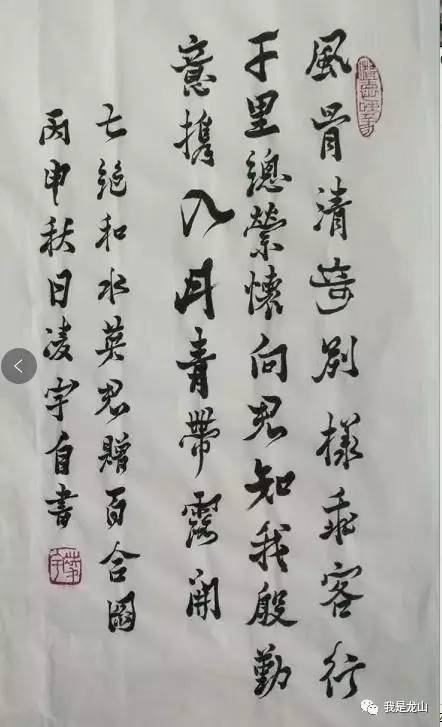 風骨清奇別樣乖客行
千里總縈懷向君知我殷勤
意携入丹青帶露開
七絕和水英君贈百合圖
丙申秋日凌宇自書
我是龙山